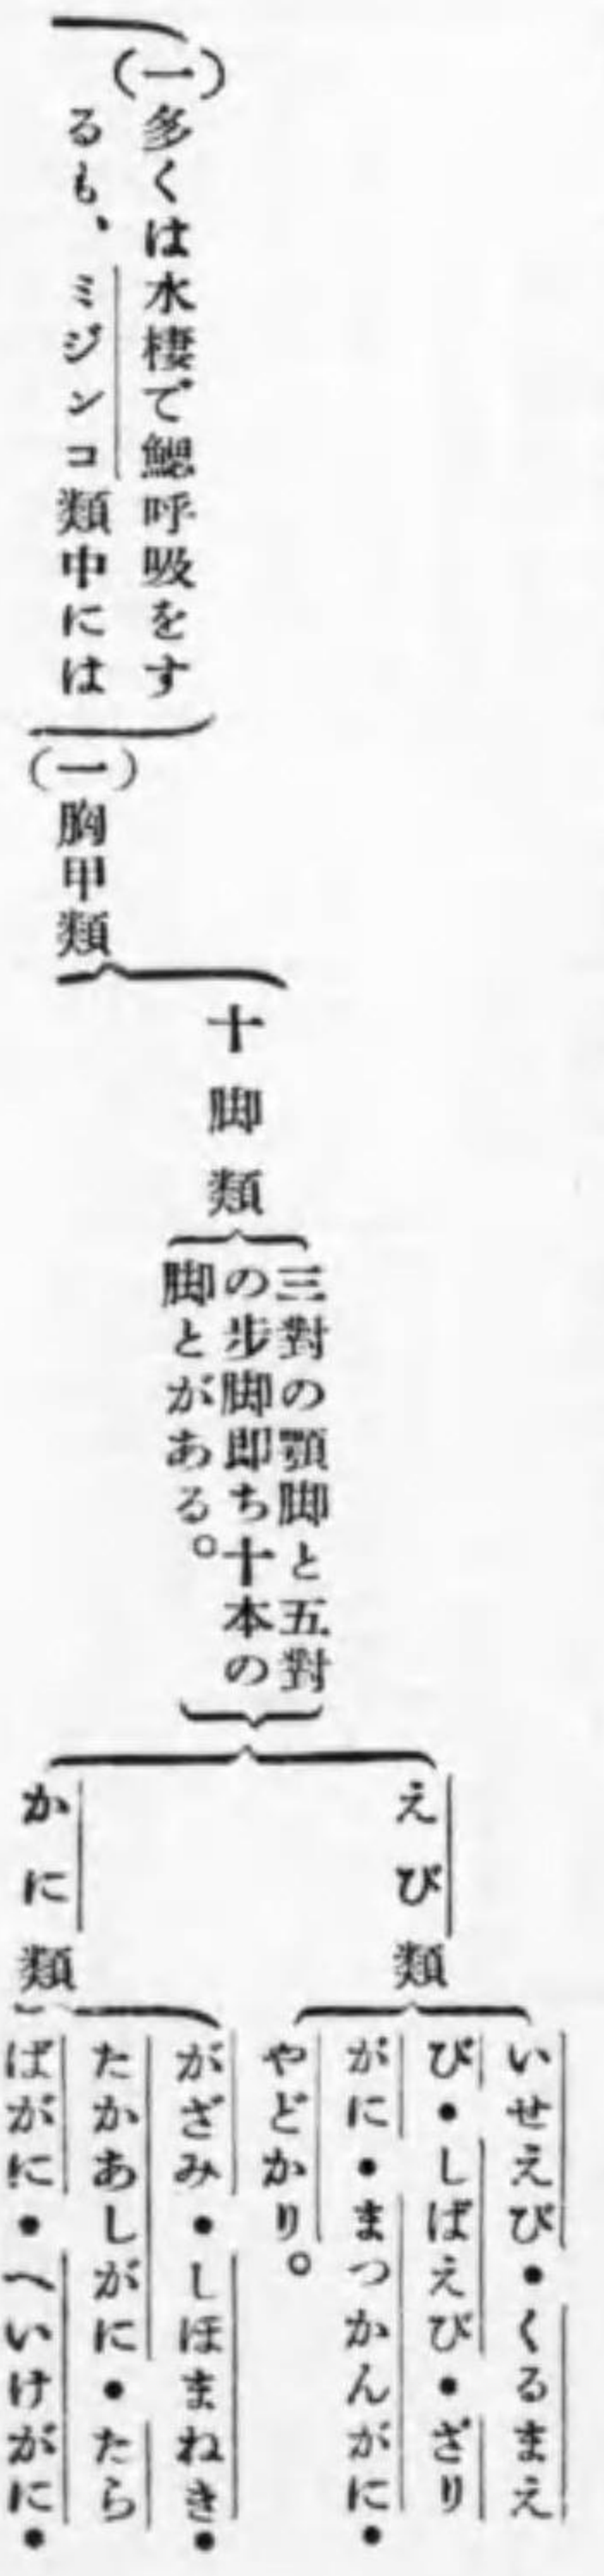 (一)多くは水棲で鰓呼吸をす
るも、ミジンコ類中には
(一)胸甲類
十脚類
三對の顎脚と五對
の步脚卽ち十本の
脚とがある。
えび類
いせえび・くるまえ
び・しばえび・ざり
がに・まつかんがに・
やどかり。
かに類
がざみ・しほまねき・
たかあしがに・たら
ばがに・へいけがに・